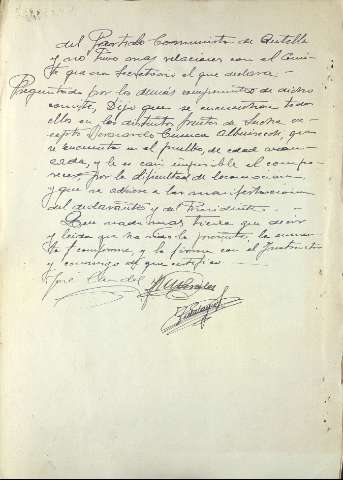 del Partido Communista de Botella
y no tuvo mas relaciones con el Comi-
té que era Secretario el que declara.-
Preguntado por los demás componentes de dicho
comité, Dijo que se encuentran todos
ellos en los distintos frentes de lucha ex-
cepto Fernando Cuenca Albarracín, que
se encuentra en el pueblo, de edad avan-
zada, y le es casi imposible el compa-
recer por la dificultad de locomoción-
y que se adhiere a las manifestaciones
del declarante y del Presidente.
Que nada mas tiene que decir
y leida que ha sido la presente, la encuen-
tra conforme y la firma con el Instructor
y conmigo de que certifico.-
José